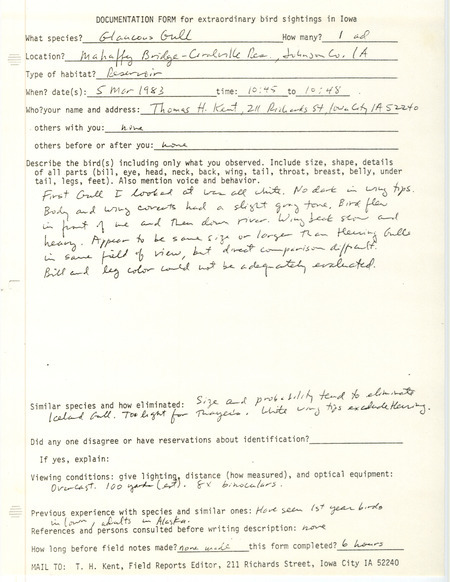 DOCUMENTATION FORM for extraordinary bird sightings in Iowa
What species? Glaucous Gull How many? 1 ad
Location? Mahaffey Bridge-Coralville Res., Johnson Co. IA
Type of habitat? Reservoir
When? date(s): 5 Mar 1983 time: 10:45 to 10:48
Who?your name and address: Thomas H. Kent, 211 Richards St, Iowa City IA 52240
others with you: none
others before or after you: none
Describe the bird(s) including only what you observed. Include size, shape, details
of all parts (bill, eye, head, neck, back, wing, tail, throat, breast, belly, under
tail, legs, feet). Also mention voice and behavior.
First Gull I looked at was all white. No dark in wing tips.
Body and wing coverts had a slight gray tone. Bird flew
in front of me and then down river. Wing beat slow and
heavy. Appear to be same size or larger than Herring Gulls
in same field of view, but direct comparison difficult.
Bill and leg color could not be adequately evaluated.
Similar species and how eliminated: Size and probability tend to eliminate
Iceland Gull. Too light for Thayer's. White wing tips exclude Herring.
Did any one disagree or have reservations about identification?
If yes, explain:
Viewing conditions: give lighting, distance (how measured), and optical equipment:
Overcast. 100 yards (est). 8x binoculars.
Previous experience with species and similar ones: Have seen 1st year birds
in Iowa, adults in Alaska.
References and persons consulted before writing description: none
How long before field notes made? none made this form completed? 6 hours
MAIL TO: T. H. Kent, Field Reports Editor, 211 Richards Street, Iowa City IA 52240